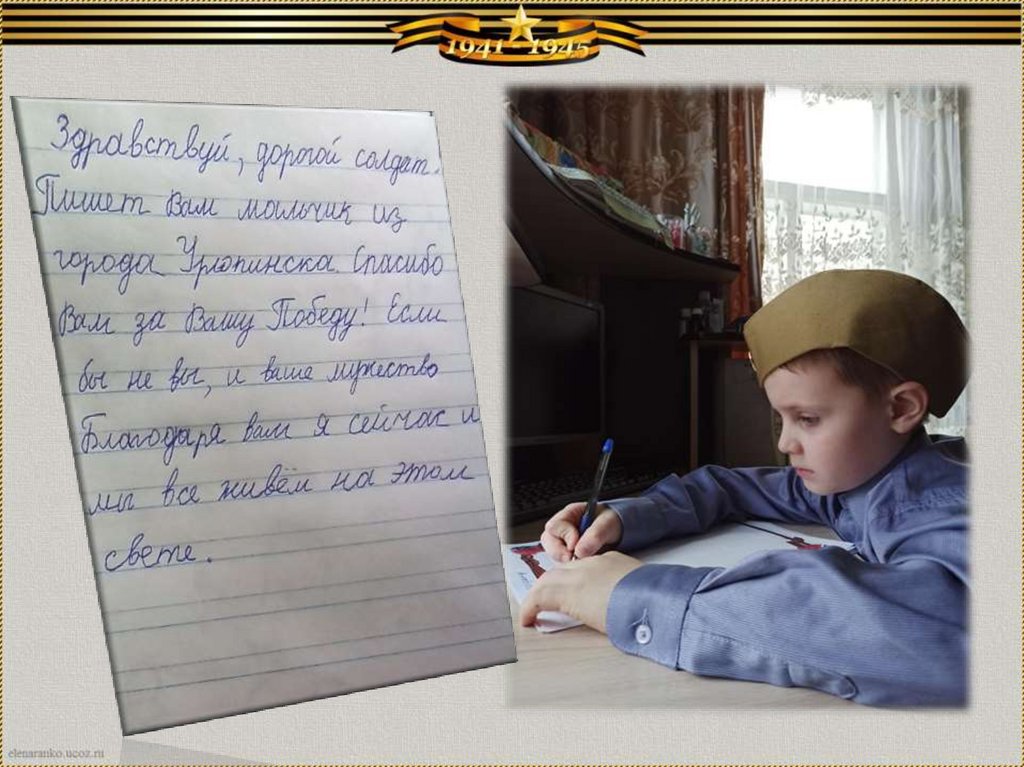 1941-1945
Здравствуй, дорогой солдат.
Пишет Вам мальчик из
города Урюпинска. Спасибо
Вам за Вашу Победу! Если
бы не вы, и ваше мужество
Благодаря вам я сейчас и
мы все живём на этом
свете.
elenaranko.ucoz.ru